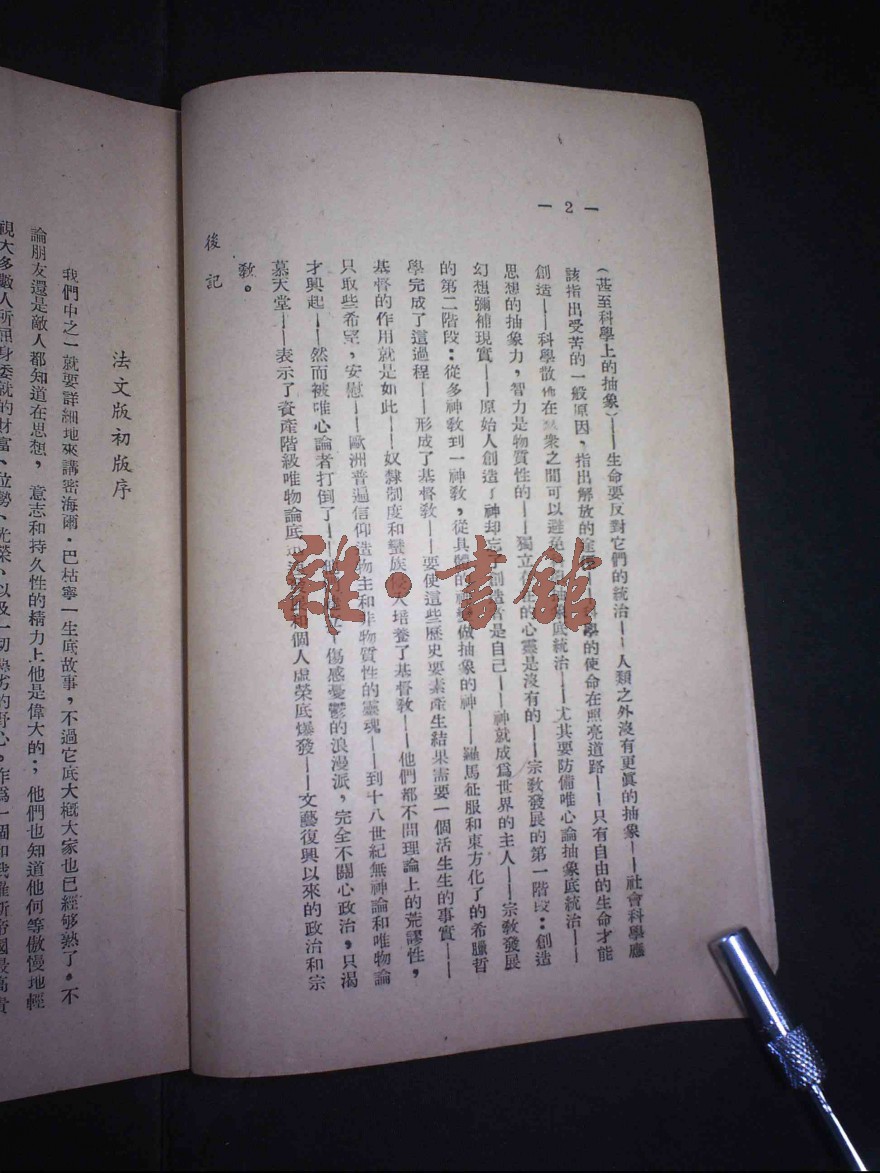 — 2 —
(甚至科學上的抽象)——生命要反對它們的統治——人類之外沒有更眞的抽象——社會科學應
該指出受苦的一般原因,指出解放的 學的使命在照亮道路——只有自由的生命才能
創造——科學 在 衆之間可以避免 底統治——尤其要防備唯心論抽象底統治——
思想的抽象力,智力是物質性的——獨立 的心靈是沒有的——宗敎發展的第一階段:創造
幻想彌補現實——原始人創造了神却忘了創造者是自己——神就成爲世界的主人——宗敎發展
的第二階段:從多神敎到一神敎,從具體的神變做抽象的神——羅馬征服和東方化了的希臘哲
學完成了這過程——形成了基督敎——要使這些歷史要素產生結果需要一個活生生的事實——
基督的作用就是如此——奴隸制度和蠻族侵入培養了基督敎——他們都不問理論上的荒謬性,
只取些希望,安慰——歐洲普遍信仰造物主和非物質性的靈魂——到十八世紀無神論和唯物論
才興起——然而被唯心論者打倒了—— 傷感憂鬱的浪漫派,完全不關心政治,只渴
慕天堂——表示了資產階級唯物論底 和個人虛榮底爆發——文藝復興以來的政治和宗
敎。
後記
法文版初版序
我們中之一就要詳細地來講密海爾·巴枯寧一生底故事,不過它底大概大家也已經够熟了。不
論朋友還是敵人都知道在思想,意志和持久性的精力上他是偉大的;他們也知道他何等傲慢地輕
視大多數人所屈身委就的財富、位勢、光榮、以及一切 劣的野心。作爲一個和 帝國最高貴
雜·書館